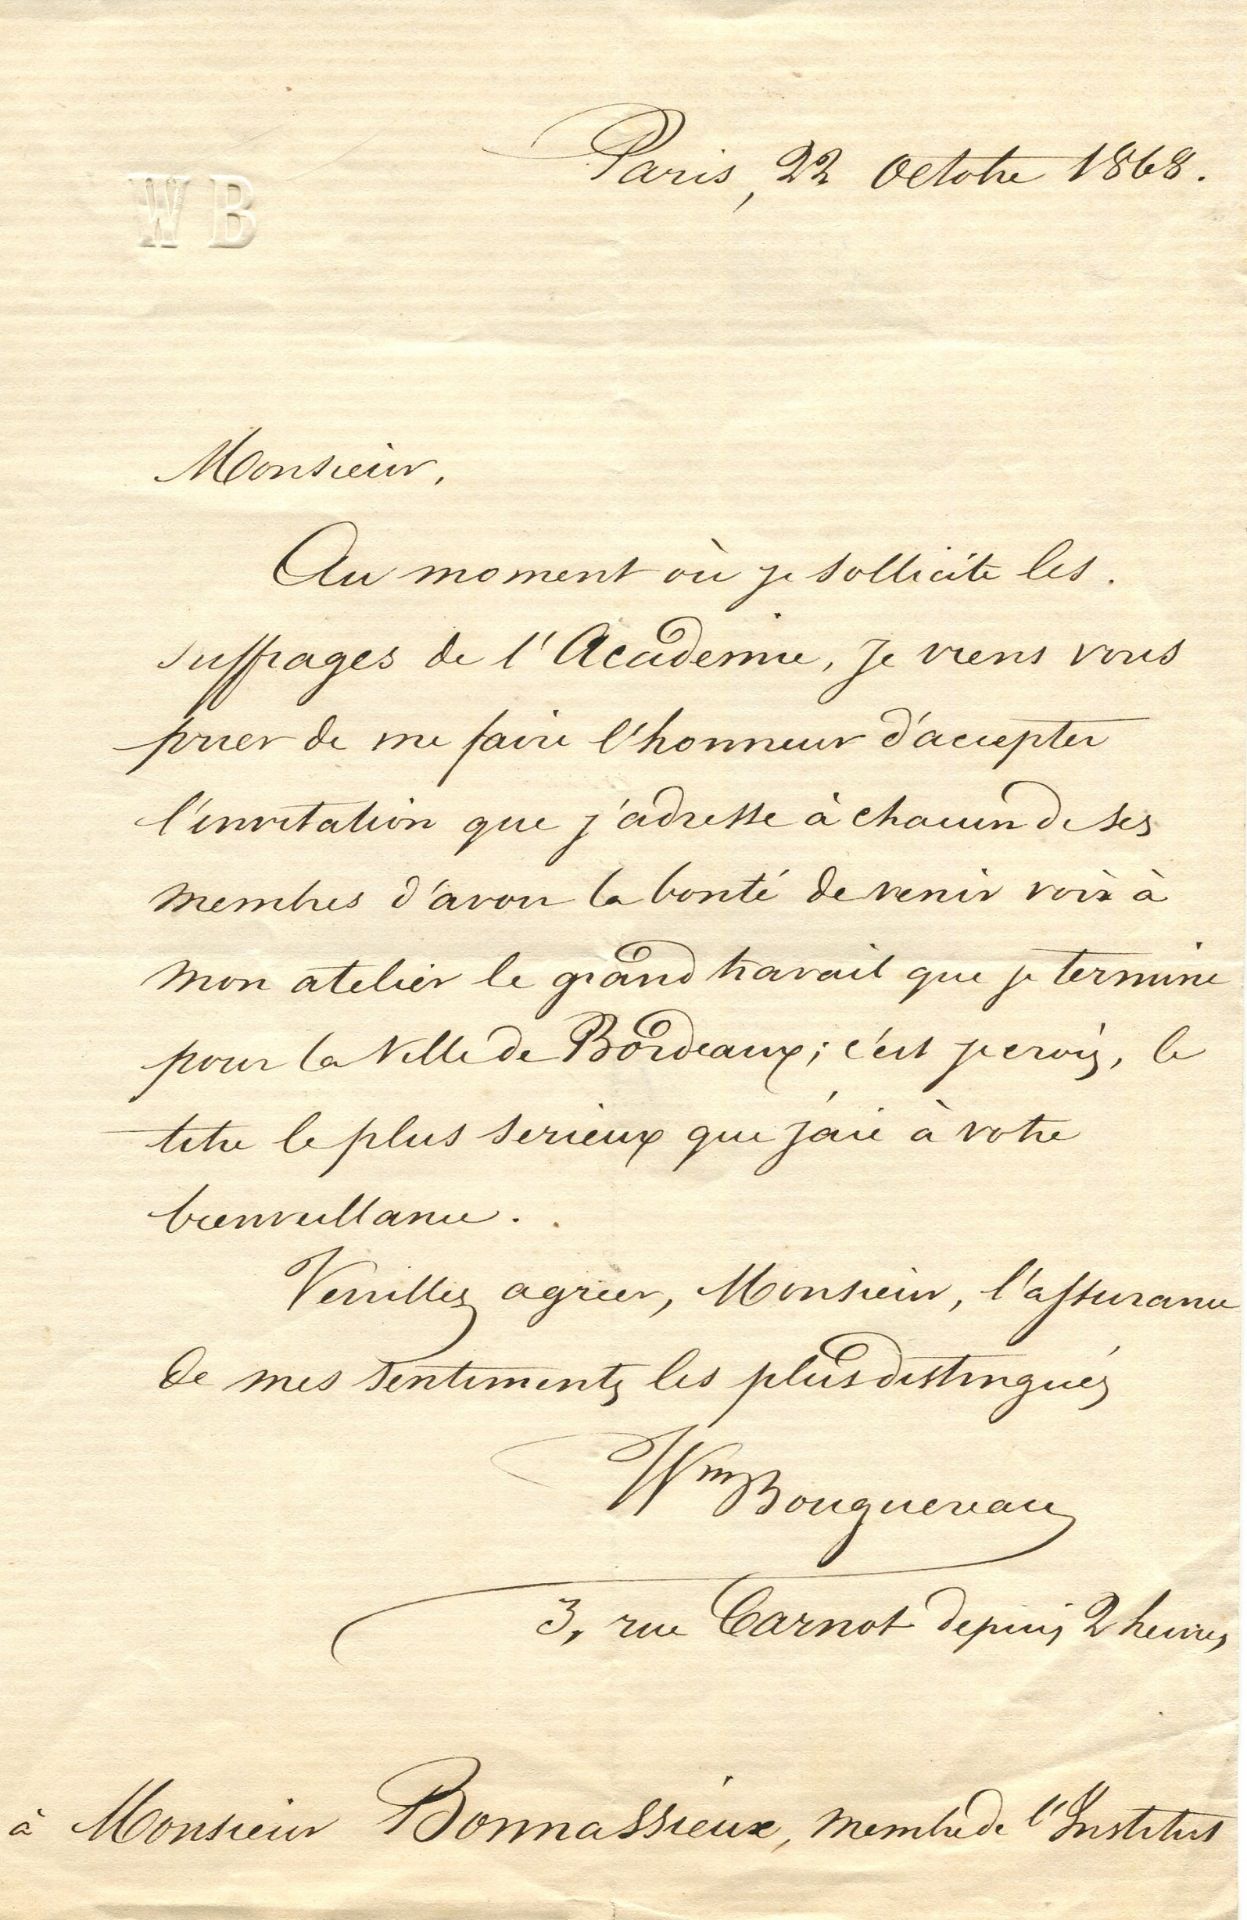 Paris, 22 Octobre 1868.
W B
Monsieur,
Au moment où je sollicite les
suffrages de l'Académie, je viens vous
prier de me faire l'honneur d'accepter
l'invitation que j'adresse à chacun de ses
membres d'avoir la bonté de venir voir à
mon atelier le grand travail que je termine
pour la Ville de Bordeaux; c'est je crois, le
titre le plus serieux que j'aie à votre
bienveillance.
Veuillez agréer, Monsieur, l'assurance
de mes sentiments les plus distingués
Wm Bouguereau
3, rue Carnot depuis 2 heures
à Monsieur Bonnassieux, membre de l'Institut